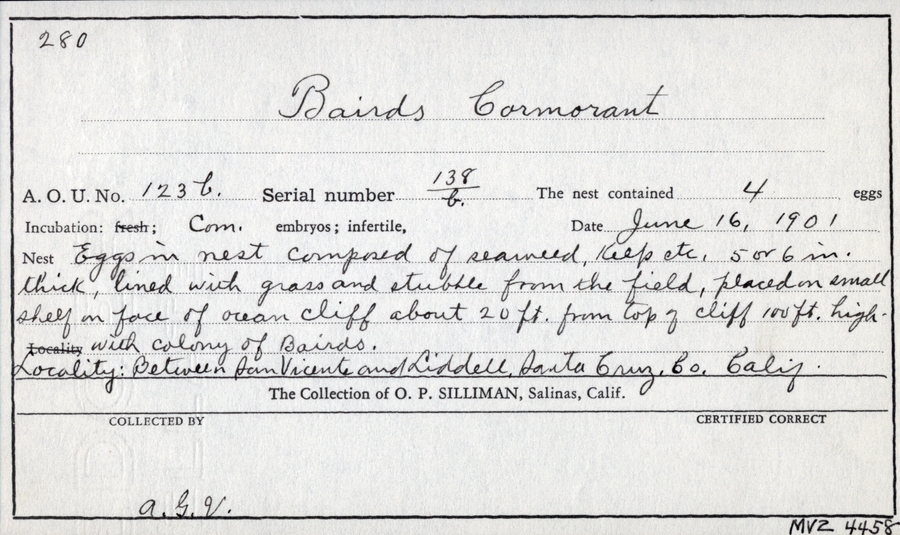 280
Bairds Cormorant
A. O. U. No. 123b. Serial number 138/b. The nest contained 4 eggs
Incubation: fresh; Com. embryos; infertile, Date June 16, 1901
Nest Eggs in nest composed of seaweed, kelp etc. 5 or 6 in.
thick, lined with grass and stubble from the field, placed on small
shelf on face of ocean cliff about 20 ft. from top of cliff 100 ft. high-
Locality with colony of Bairds.
Locality: Between San Vicente and Liddell, Santa Cruz, Co. Calif.
The Collection of O. P. SILLIMAN, Salinas, Calif.
COLLECTED BY CERTIFIED CORRECT
a. G. V.
MVZ 4458